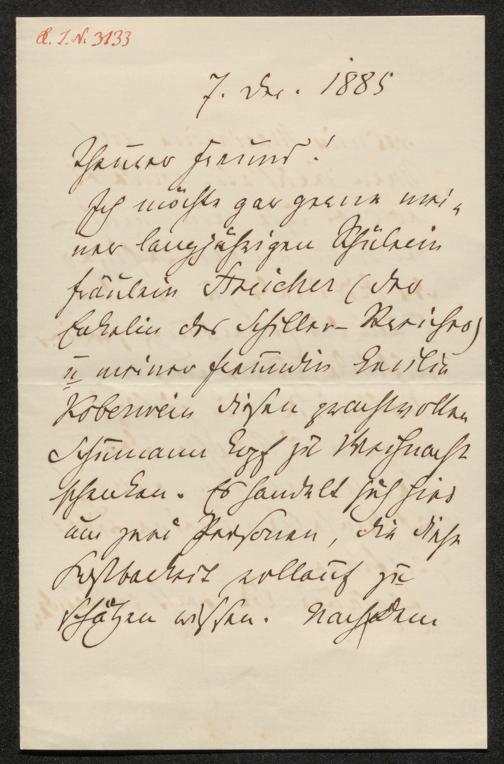 A. I. N. 3133
7. Dec. 1885
Theurer Freund!
Ich möchte gar gerne mei-
ner langjährigen Schülerin
Fräulein Streicher (der
Enkelin des Schiller-Streicher)
u meiner Freundin Emilie
Koberwein diesen prachtvollen
Schumann Kopf zu Weihnacht
schenken. Es handelt sich hier
um zwei Personen, die diese
Kostbarkeit vollauf zu
schätzen wissen. Nachdem